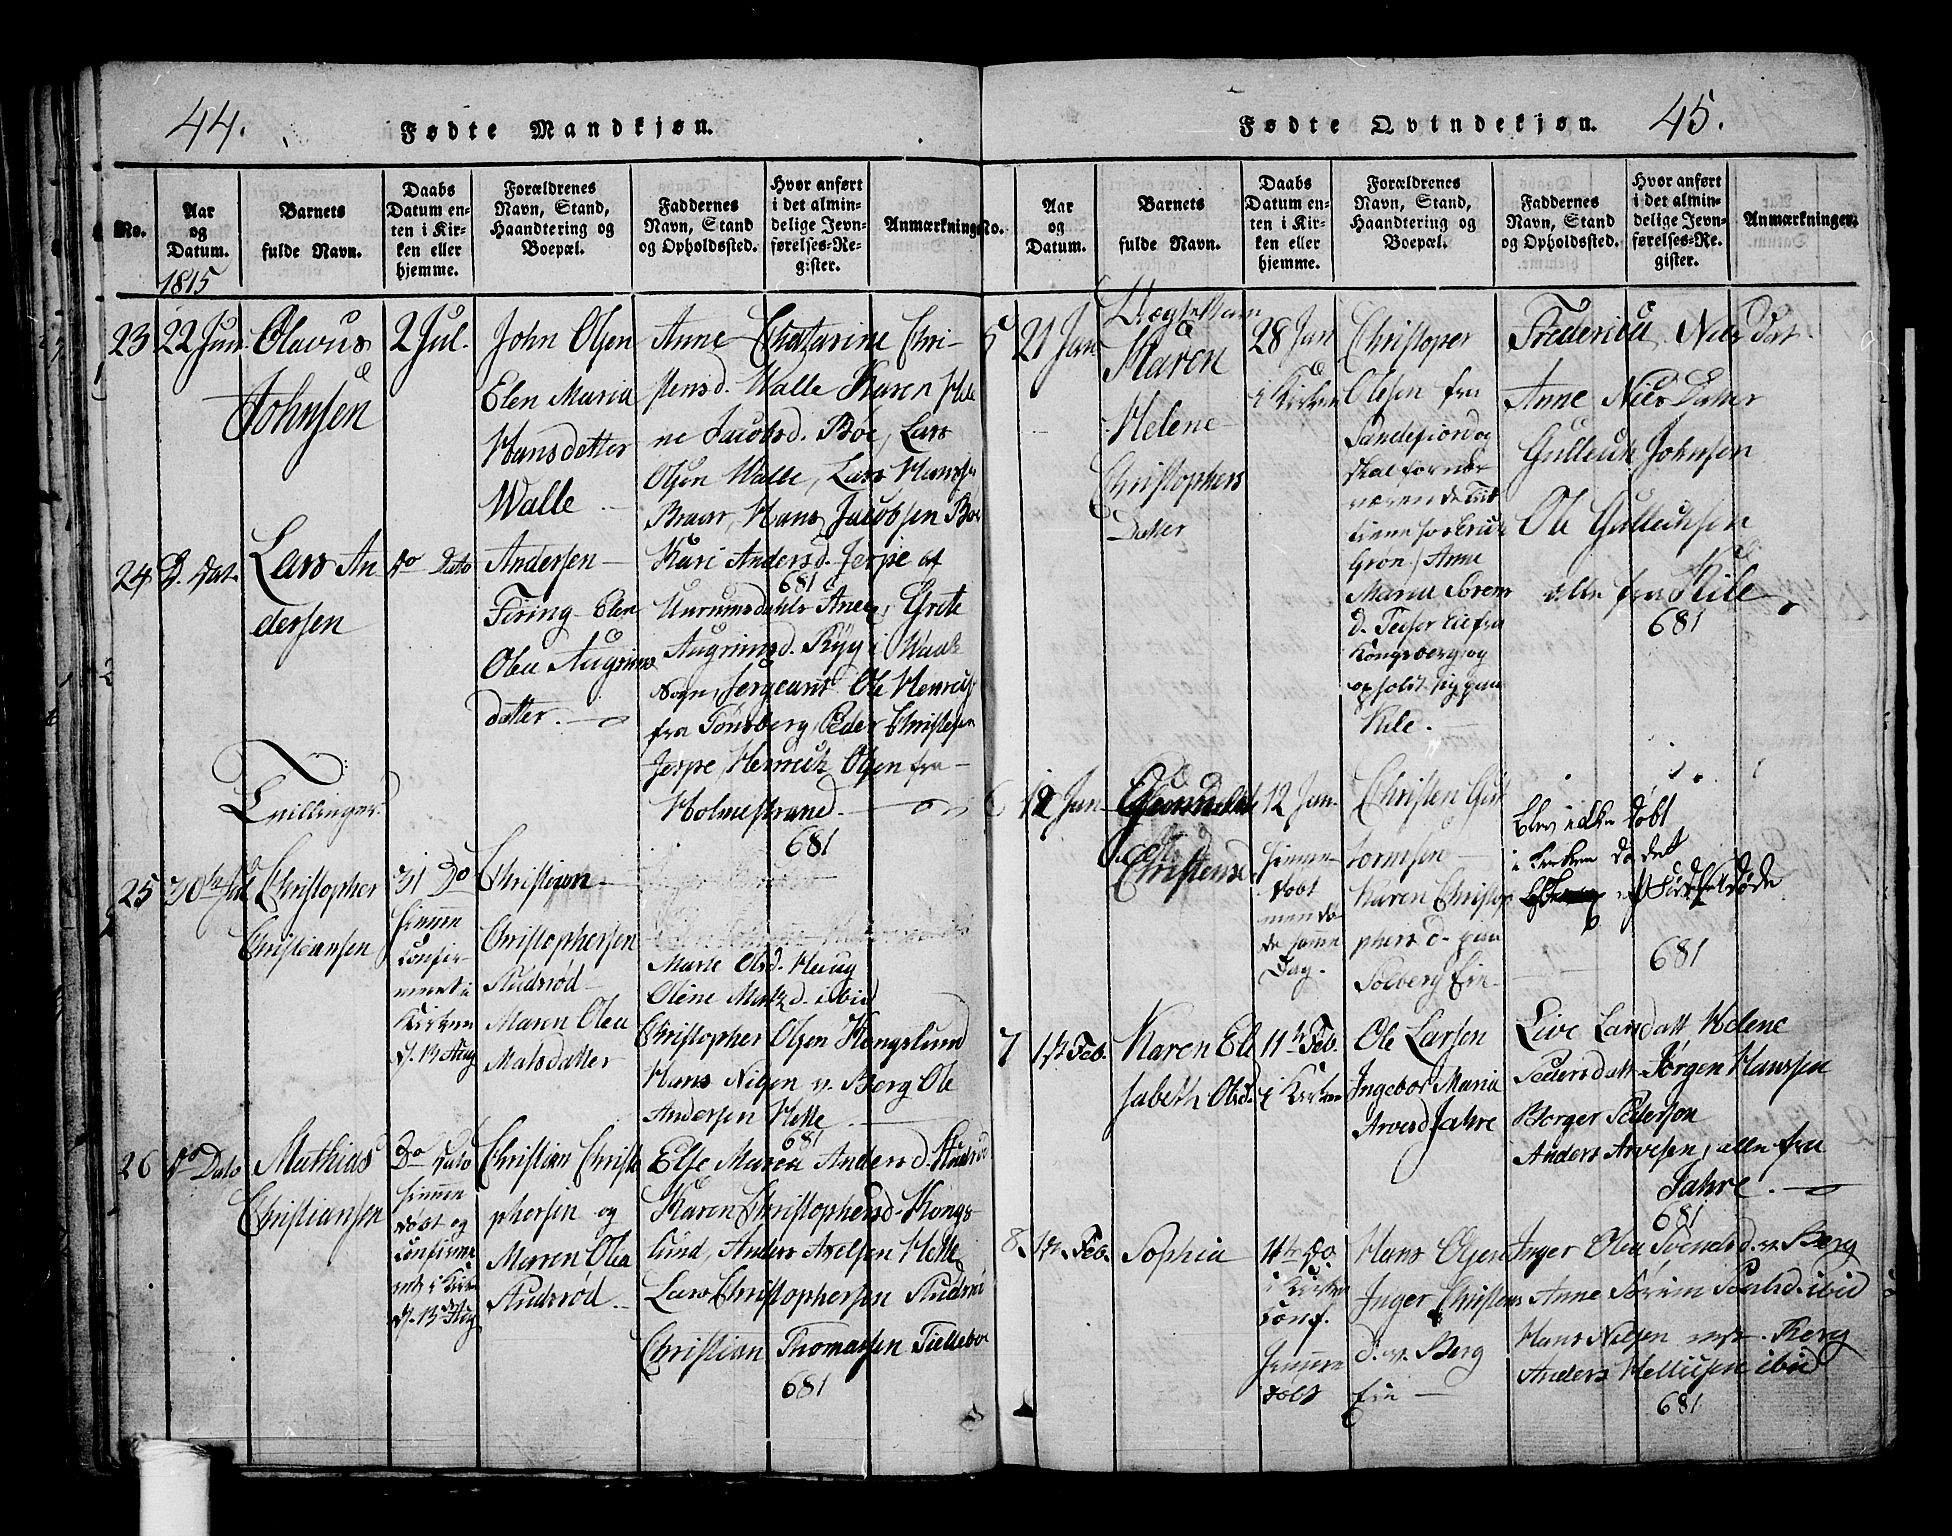 44.
Fødte Mandkjøn.
No.
Aar og Datum.
Barnets fulde Navn.
Daabs Datum enten i Kirken eller hjemme.
Forældrenes Navn, Stand, Haandtering og Boepæl.
Faddernes Navn, Stand og Opholdssted.
Hvor anført i det almindelige Jevnførelses-Register.
Anmærkninge
1815
23
22 Juni
Olavus
Johnsen
2 Jul.
John Olsen
Elen Maria
Hansdatter
Walle
Anne Chatzarine Chri-
stensd. Walle Karen Hele
ne Jacobsd. Bøe, Lars
Olsen Walle, Lars Hansen
Braar, Hans Jacobsen Bøe
24
D. Dat.
Lars An
dersen
Do Dato
Andersen
Firing Elen
Olea Augrims
datter.
Kari Andersd. Jerpe af
681
Grete
Augrimsd. Ryg i
Sogn, Sergeant Ole Henrich
fra Tønsberg, Peder Christensen
Jerpe, Henrich Olsen fra
Holmestrand.
681
Tvillinger
25
30te Jul
Christopher
Christiansen
31 Do
hjemme
confir-
meret i
Kirken
d. 13 Aug
Christian
Christophersen
Rudsrød
Maren Olea
Matsdatter
Marte Olsd. Haug
Oline Matzd. ibid
Christopher Olsen Kongslund
Hans Nilsen v. Berg Ole
Andersen Hette
681
26
Do Dato
Mathias
Christiansen
Do Dato
hjemme
døbt og
confirme
ret i Kirken
d. 13 Aug
Christian Christo
phersen og
Maren Olea
Rudsrød.
Else Maria Andersd.
Karen Christophersd. Kongs-
lund, Anders Axelsen Hette
Lars Christophersen Rudsrød
Christian Thomassen Tiellebøe
681
Fødte Qvindekjøn.
45.
No.
Aar og Datum.
Barnets fulde Navn.
Daabs Datum enten i Kirken eller hjemme.
Forældrenes Navn, Stand, Haandtering og Boepæl.
Faddernes Navn, Stand og Opholdssted.
Hvor anført i det almindelige Jevnførelses-Re. gister.
Anmærkningen.
5
21 Jan
Uægte Barn
Karen
Helene
Christophers
Datter
28 Jan
i Kirken
Christopher
Olesen fra
Sandefiord og
skal fornær
værende Tid
tiene hos Erich
Grøn / Anne
Maria Sørens
d.
Kongsberg og
opholdt sig paa
Kile.
Frederica Niels Dat.
Anne Niels Datter
Gullich Johnsen
Ole Gullichsen
alle fra Kile
681
6
12 Jan
Christensd
12 Jan.
hjemme
døbt
men dø
de samme
Dag.
Christen Gut
tormsen
Karen Christo
phersd. paa
Solberg Eie
Blev ikke døbt
i Kirken da det
ved Fødsel døde
681
7
1st Feb.
Karen Eli
sabeth Olsd.
11te Feb.
i Kirken
Ole Larsen
Ingebor Maria
Arvesd Jahre
Live Larsdatt Helene
Pedersdatt Jørgen Hanssen
Borger Pedersøn
Anders Arvesen, alle fra
Jahre.
681
8.
1st. Feb.
Sophia
11te Do
i Kirken
conf.
hjemme
døbt
Hans Olsen
Inger Christens
d. v. Berg
Eie
Inger Olea Svendsd. v. Berg
Anne Sørine Poulsd. ibid
Hans Nilsen vest. Berg
Anders Hellicksen ibid
681